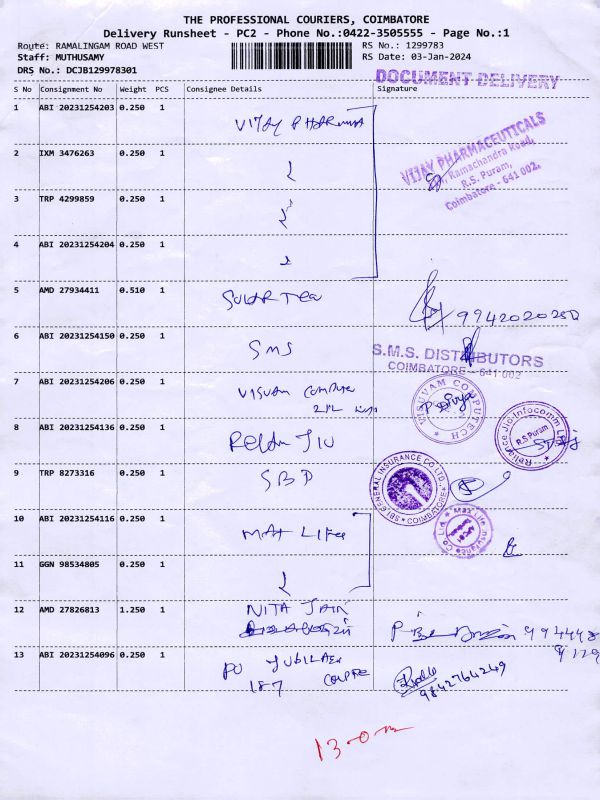 THE PROFESSIONAL COURIERS, COIMBATORE
Delivery Runsheet - PC2 - Phone No.:0422-3505555 - Page No.:1
Route: RAMALINGAM ROAD WEST
RS No.: 1299783
Staff: MUTHUSAMY
RS Date: 03-Jan-2024
DRS No.: DCJB129978301
DOCUMENT DELIVERY
S No Consignment No Weight PCS Consignee Details Signature
1 ABI 20231254203 0.250 1 VIJAY PHARMA
VIJAY PHARMACEUTICALS
Ramachandra Road,
R.S. Puram,
Coimbatore - 641 002.
2 IXM 3476263 0.250 1
3 TRP 4299859 0.250 1
4 ABI 20231254204 0.250 1
5 AMD 27934411 0.510 1
6 ABI 20231254150 0.250 1 SMS
S.M.S. DISTRIBUTORS
COIMBATORE - 641 002
7 ABI 20231254206 0.250 1 VISUVAM
VISUVAM COMPUTECH
8 ABI 20231254136 0.250 1
Reliance Jio Infocomm Ltd
R.S Puram
9 TRP 8273316 0.250 1 SBD
SBI GENERAL INSURANCE CO LTD.
COIMBATORE
10 ABI 20231254116 0.250 1 MAX LIFE
Max Life Insurance Co. Ltd.
11 GGN 98534805 0.250 1
12 AMD 27826813 1.250 1 NITA JAIN
13 ABI 20231254096 0.250 1
187
9842764249
13-0